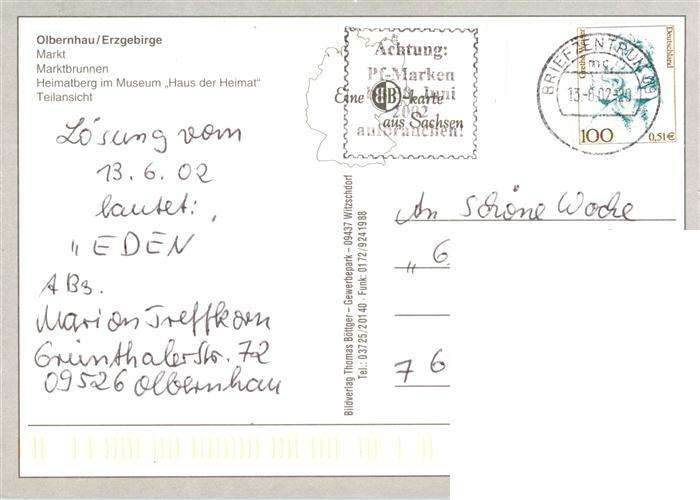 Olbernhau/Erzgebirge
Markt
Marktbrunnen
Heimatberg im Museum „Haus der Heimat“
Teilansicht
Lösung vom
13.6.02
lautet:
„EDEN
ABS.
Marion Treffkorn
Grünthalerstr. 72
09526 Olbernhau
Achtung:
Pf-Marken
Juni
2002
aufbrauchen!
Eine BB-karte
aus Sachsen
BRIEFZENTRUM 09
mc
13-6.02
Deutschland
100
0,51€
Bildverlag Thomas Böttger – Gewerbepark – 09437 Witzschdorf
Tel.: 03725/20140 · Funk: 0172/9241988
An Schöne Woche
„6
76